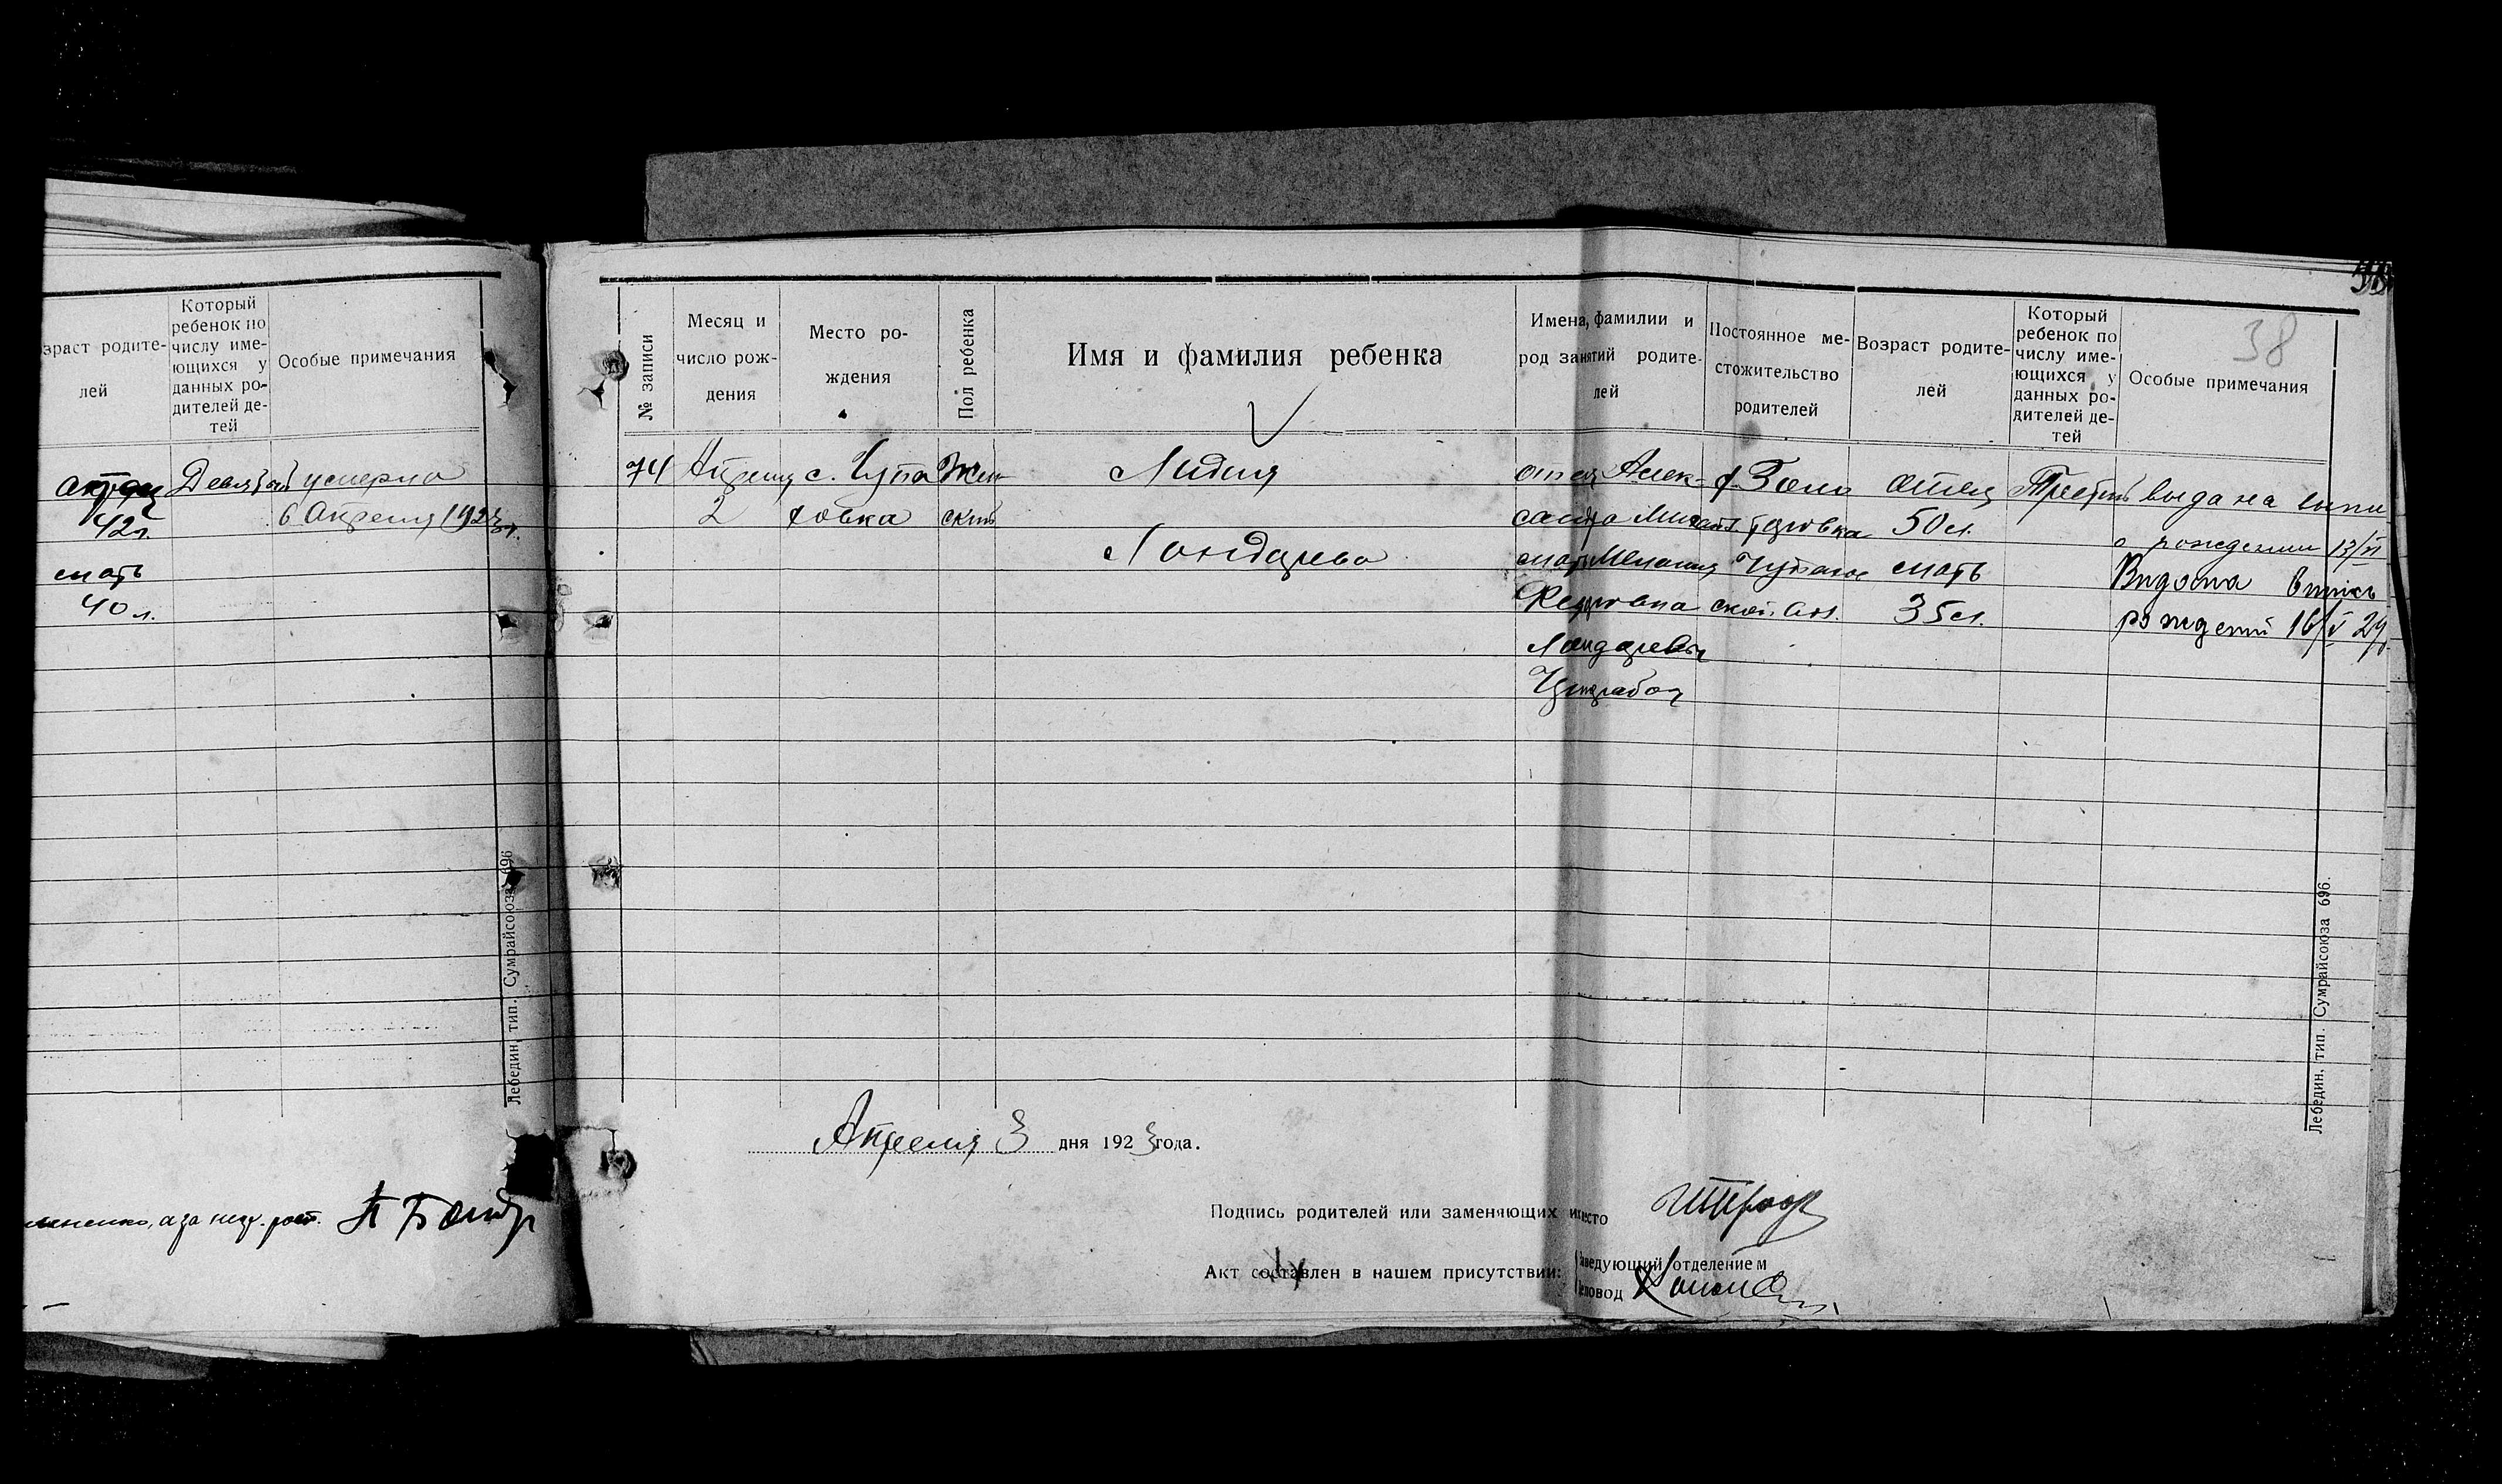 зраст родите-
лей
Который
ребенок по
числу име-
ющихся у
данных ро-
дителей де-
тей
Особые примечания
отец
42 г.
мать
40 л.
Девятый
умерла
6 Апреля 1923 г.
Лебедин, тип. Сумрайсоюза 696
а за негр. расп.
38
№ записи
Месяц и
число рож-
дения
Место ро-
ждения
Пол ребенка
Имя и фамилия ребенка
Имена, фамилии и
род занятий родите-
лей
Постоянное ме-
стожительство
родителей
Возраст родите-
лей
Который
ребенок по
числу име-
ющихся у
данных ро-
дителей де-
тей
Особые примечания
38
74
Апреля
2
с. Чупа
ховка
Жен
ский
Лидия
Лондарева
отец Алек-
сандр Михайл.
мать Мелания
Федоровна
Лондаревы
отец
50 л.
мать
35 л.
Третий
выдана выпи
о рождении 13/VI
Видана випись
Лебедин, тип. Сумрайсоюза 696.
Апреля 3 дня 1923 года.
Подпись родителей или заменяющих место
Акт составлен в нашем присутствии:
Заведующий отделением